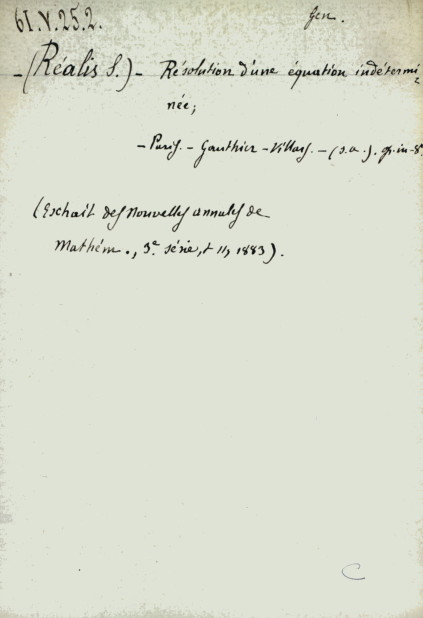 61.V.25.2.
gen.
- (Réalis S.) - Résolution d'une équation indétermi-
née;
- Paris. - Gauthier-Villars. - (s.a.). gr. in-8°
(Extrait des Nouvelles annales de
Mathém., 3e série, t II, 1883).
C